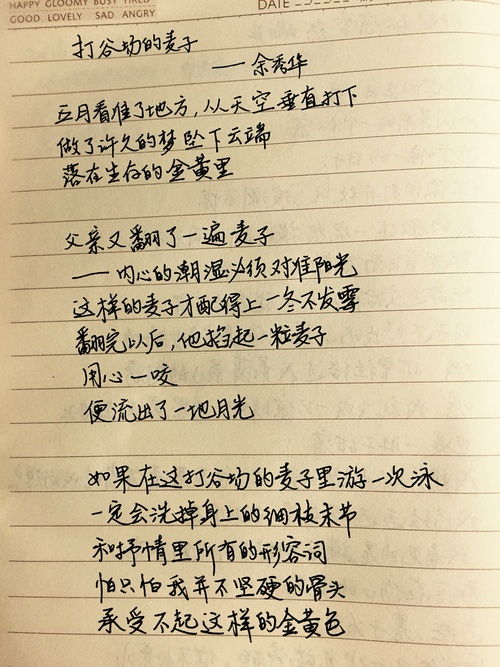 HAPPY GLOOMY BUSY TIRED
GOOD LOVELY SAD ANGRY
DATE
打谷场的麦子
——余秀华
五月看准了地方，从天空垂直打下
做了许久的梦坠下云端
落在生存的金黄里
父亲又翻了一遍麦子
——内心的潮湿必须对准阳光
这样的麦子才配得上一冬不发霉
翻完以后，他掐起一粒麦子
用心一咬
便流出了一地月光
如果在这打谷场的麦子里游一次泳
一定会洗掉身上的细枝末节
和抒情里所有的形容词
怕只怕我并不坚硬的骨头
承受不起这样的金黄色